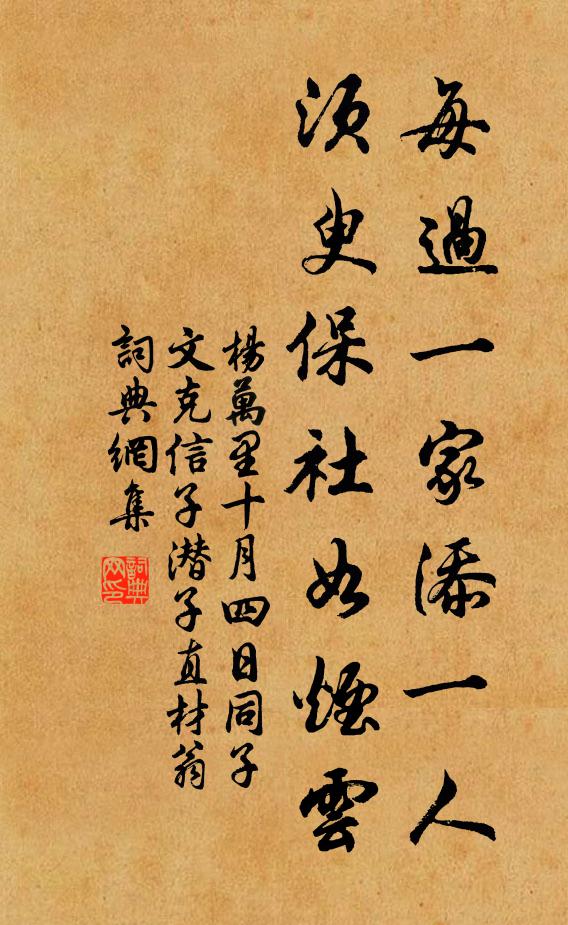 每過一家添一人
須臾保社如煙雲
楊萬里十月四日同子
文克信子潜子直材翁
詞典網集
詞典網印